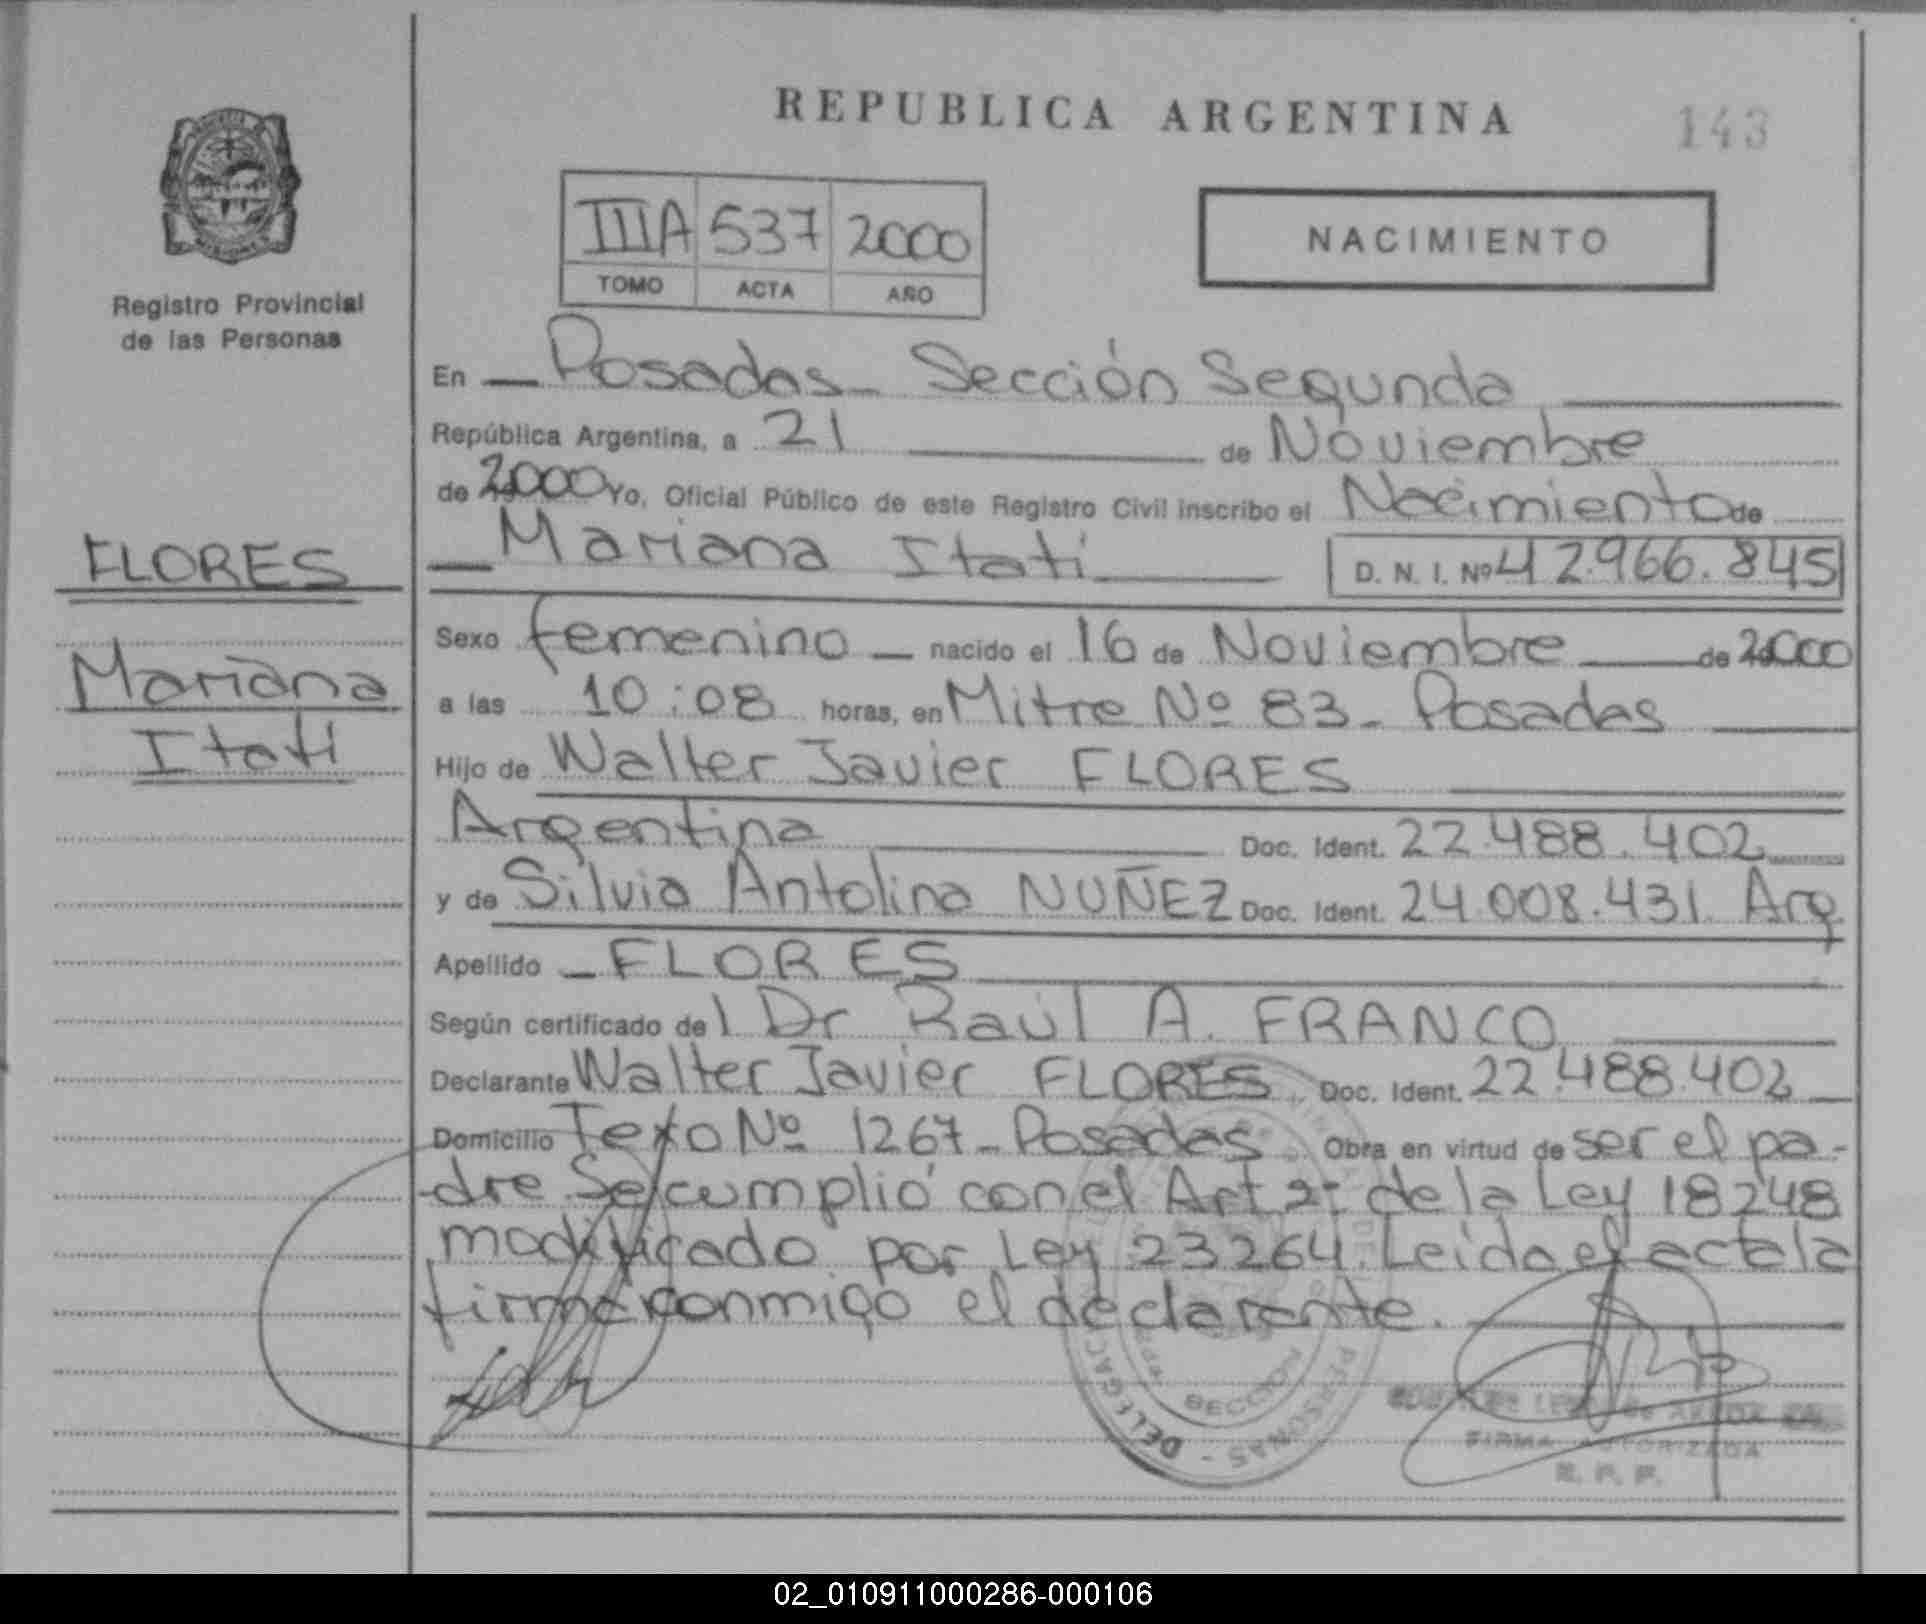 REPUBLICA ARGENTINA
143
IIIA 537 2000
TOMO ACTA AÑO
NACIMIENTO
Registro Provincial
de las Personas
En Posadas - Sección Segunda
República Argentina, a 21 de Noviembre
de 2000 Yo, Oficial Público de este Registro Civil inscribo el Nacimiento de
Mariana Itatí D. N. I. Nº 42.966.845
FLORES
Mariana
Itatí
Sexo femenino nacido el 16 de Noviembre de 2000
a las 10:08 horas, en Mitre Nº 83 - Posadas
Hijo de Walter Javier FLORES
Argentina Doc. Ident. 22.488.402
y de Silvia Antolina NUÑEZ Doc. Ident. 24.008.431 Arg
Apellido FLORES
Según certificado del Dr Raúl A. FRANCO
Declarante Walter Javier FLORES Doc. Ident. 22.488.402
Domicilio Texo Nº 1267 - Posadas Obra en virtud de ser el pa-
dre Se cumplió con el Art 2º de la Ley 18248
modificado por Ley 23264. Leída el acta la
firma conmigo el declarante.
DELEGAC PERSONAS -
SECCION
FIRMA AUTORIZADA
R. P. P.
02_010911000286-000106